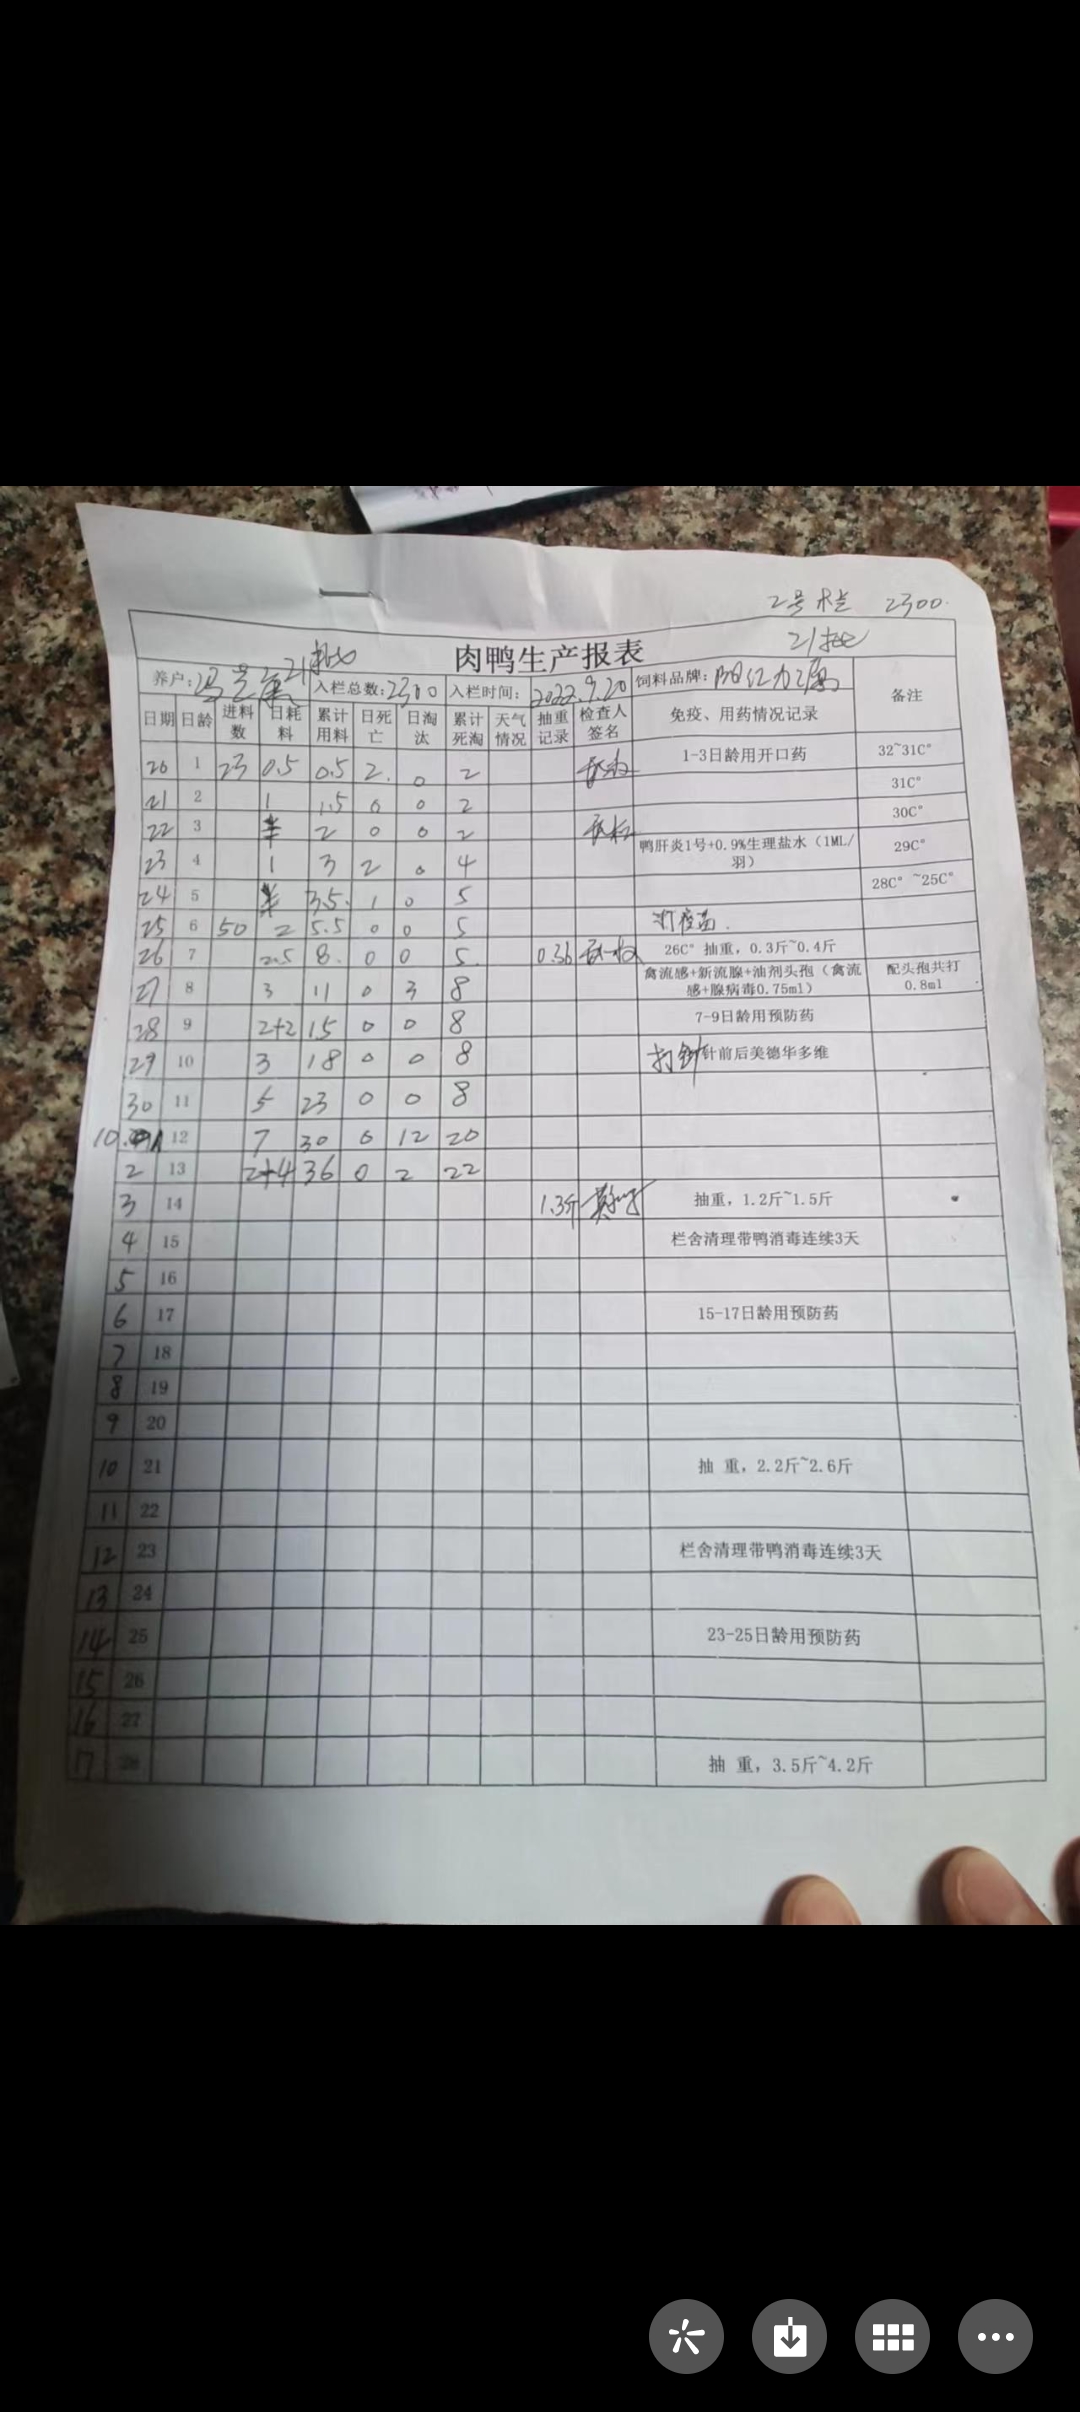 2号栏 2300.
21批
肉鸭生产报表
养户: 21批 入栏总数:2300 入栏时间: 2022.9.20 饲料品牌: 备注
日期 日龄 进料数 日耗料 累计用料 日死亡 日淘汰 累计死淘 天气情况 抽重记录 检查人签名 免疫、用药情况记录
20 1 23 0.5 0.5 2. 0 2 1-3日龄用开口药 32~31C°
21 2 1 1.5 0 0 2 31C°
22 3 半 2 0 0 2 30C°
23 4 1 3 2 0 4 鸭肝炎1号+0.9%生理盐水（1ML/羽） 29C°
24 5 半 3.5. 1 0 5 28C° ~25C°
25 6 50 2 5.5 0 0 5 打疫苗.
26 7 2.5 8. 0 0 5. 0.36 26C° 抽重，0.3斤~0.4斤
27 8 3 11 0 3 8 禽流感+新流腺+油剂头孢（禽流感+腺病毒0.75ml） 配头孢共打0.8ml
28 9 2+2 15 0 0 8 7-9日龄用预防药
29 10 3 18 0 0 8 打针针前后美德华多维
30 11 5 23 0 0 8
10. 1 12 7 30 0 12 20
2 13 2+4 36 0 2 22
3 14 1.3斤 抽重，1.2斤~1.5斤
4 15 栏舍清理带鸭消毒连续3天
5 16
6 17 15-17日龄用预防药
7 18
8 19
9 20
10 21 抽 重，2.2斤~2.6斤
11 22
12 23 栏舍清理带鸭消毒连续3天
13 24
14 25 23-25日龄用预防药
15 26
16 27
17 28 抽 重，3.5斤~4.2斤